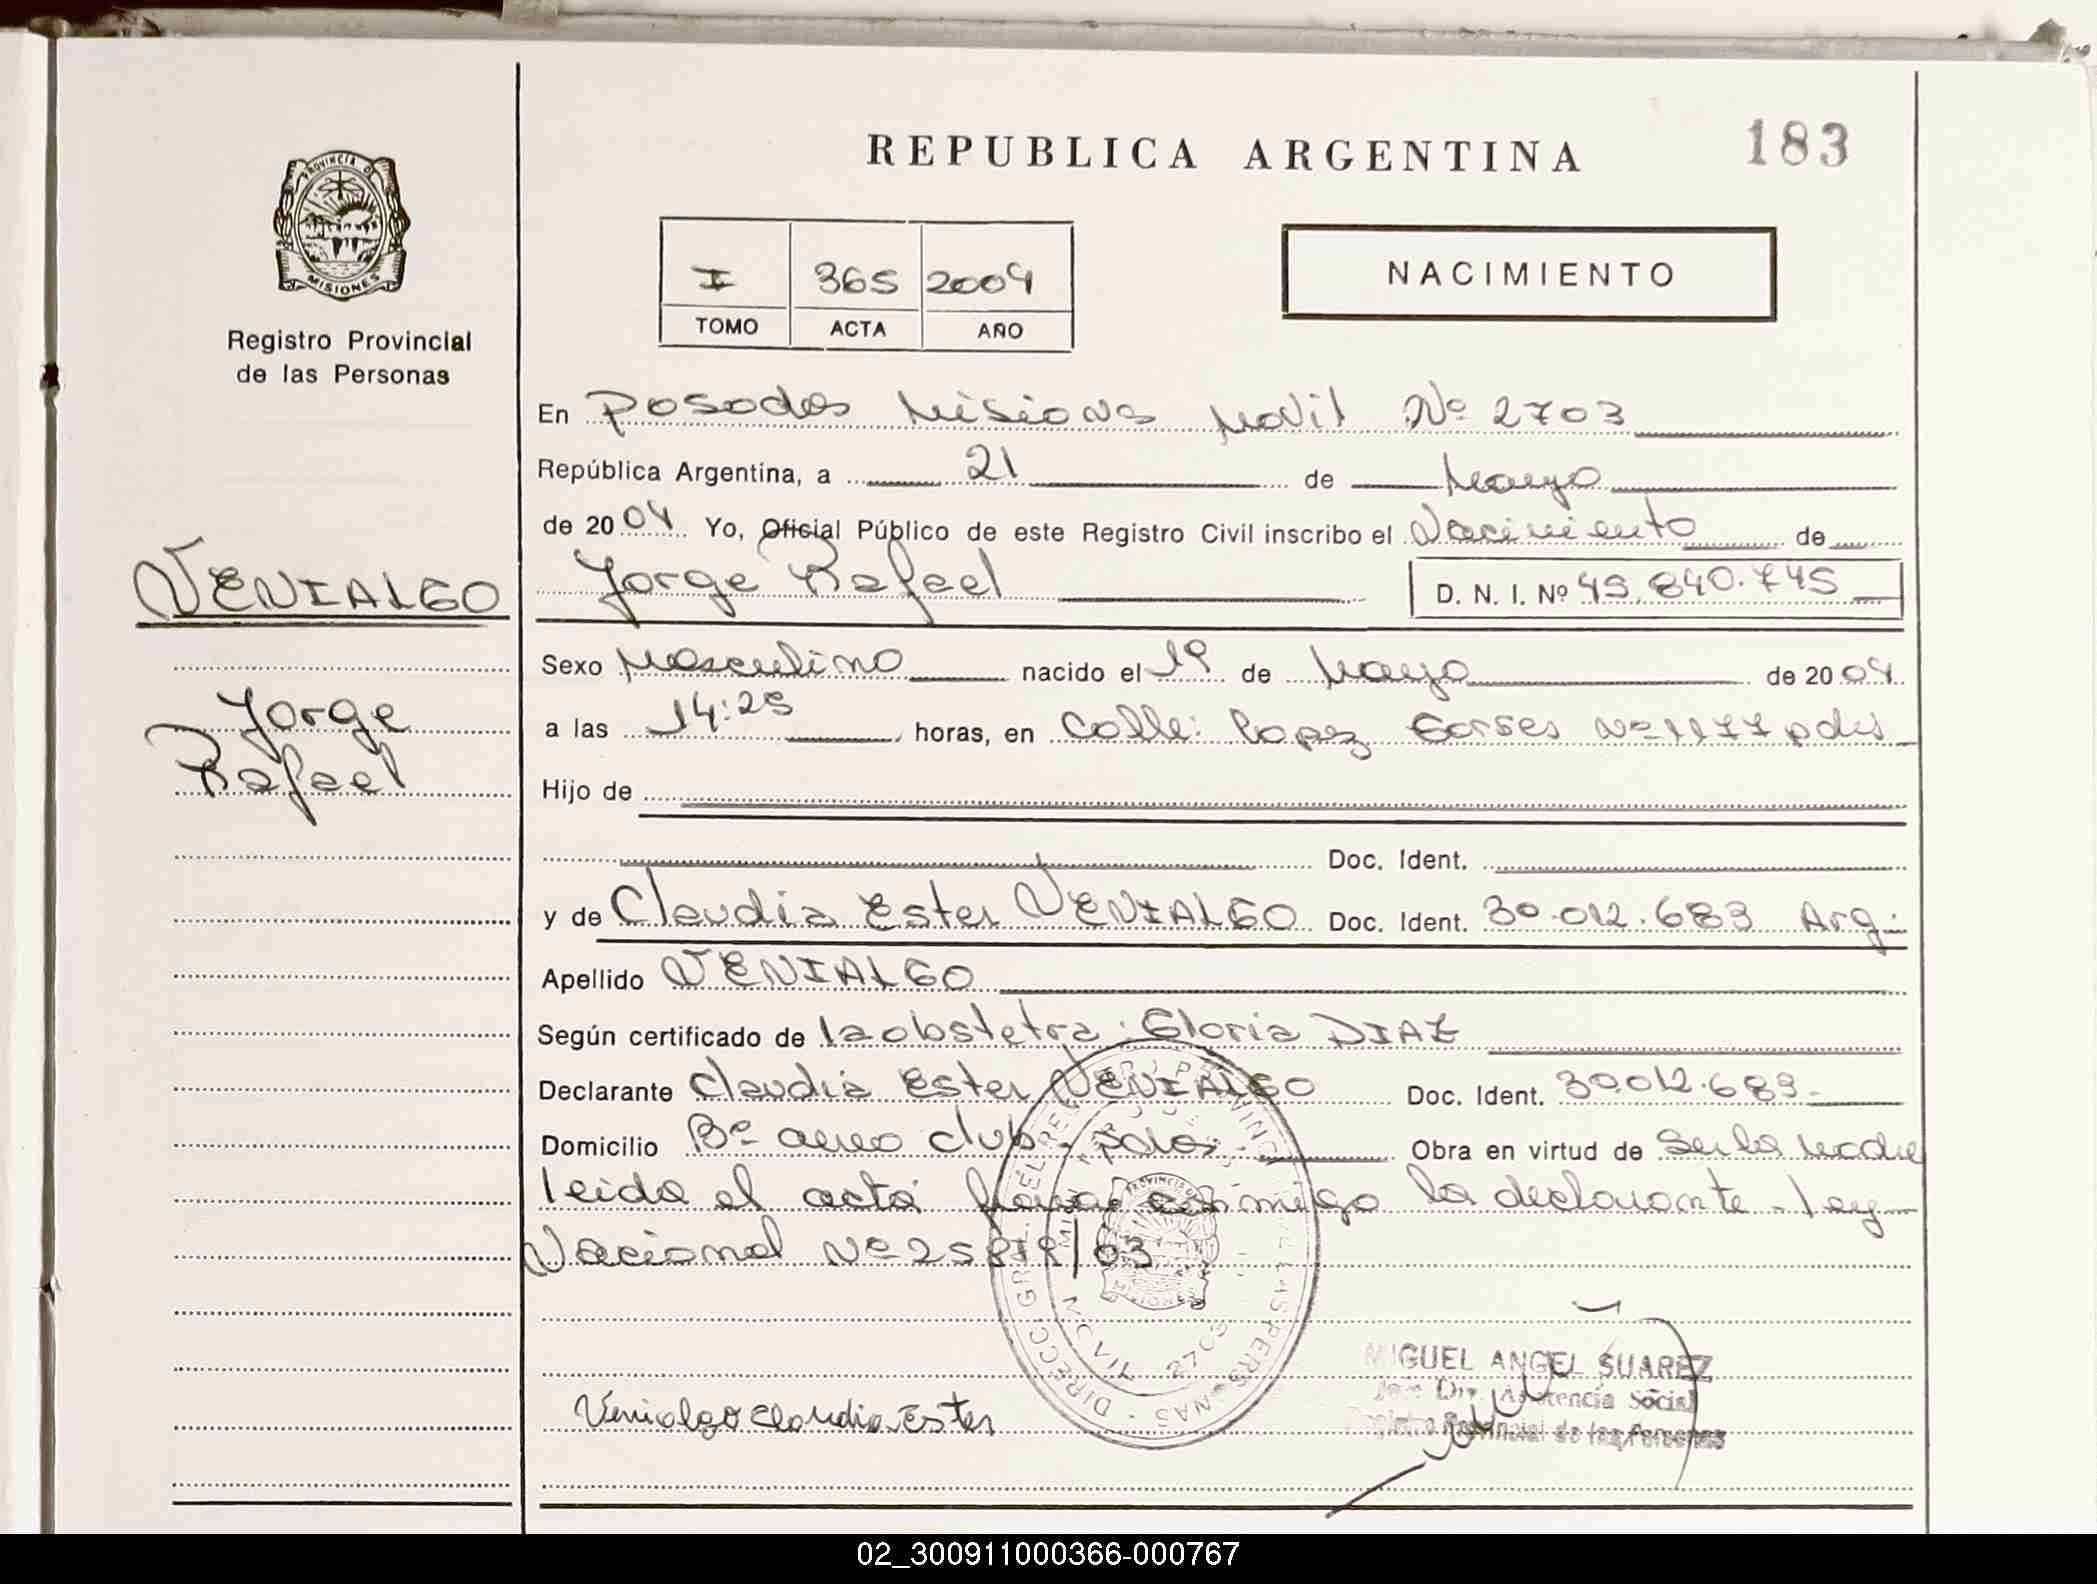 REPUBLICA ARGENTINA
183
PROVINCIA DE
MISIONES
Registro Provincial
de las Personas
I 365 2004
TOMO ACTA AÑO
NACIMIENTO
En Posadas Misiones Movil Nº 2703
República Argentina, a 21 de Mayo
de 2004 Yo, Oficial Público de este Registro Civil inscribo el Nacimiento de
VENIALGO
Jorge Rafael
D. N. I. Nº 45.840.745
Sexo Masculino nacido el 19 de Mayo de 2004
Jorge
Rafael
a las 14:25 horas, en Calle: Lopez Nº 1177 pdas
Hijo de
Doc. Ident.
y de Claudia Ester VENIALGO Doc. Ident. 30.012.683 Arg.
Apellido VENIALGO
Según certificado de la obstetra: Gloria DIAZ
Declarante Claudia Ester VENIALGO Doc. Ident. 30.012.683
Domicilio Bº aereo club. pdas. Obra en virtud de Ser la madre
leida el acta firma conmigo la declarante. Ley
Nacional Nº 25819/03
MOVIL 2703
Venialgo Claudia Ester
MIGUEL ANGEL SUAREZ
Jefe Div. Asistencia Social
Registro Provincial de las Personas
02_300911000366-000767